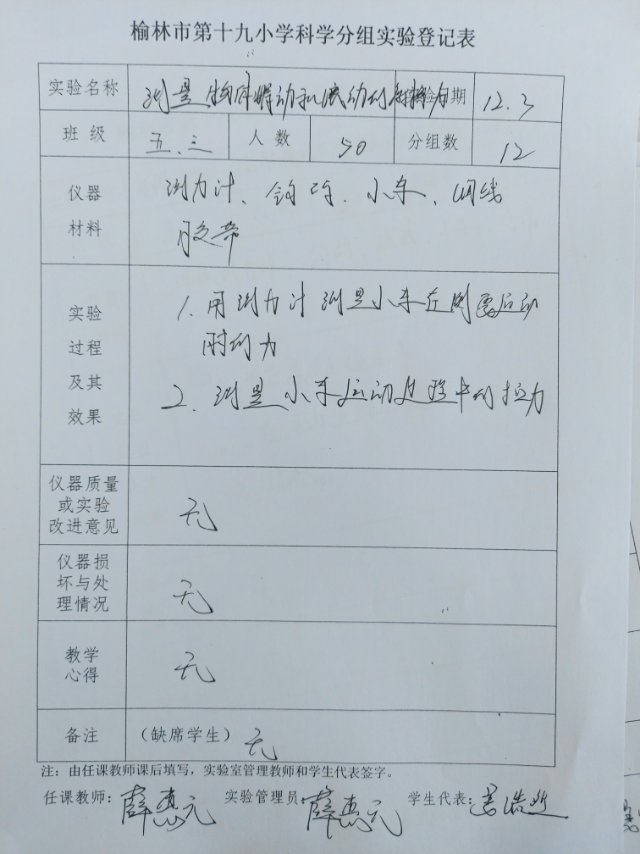 榆林市第十九小学科学分组实验登记表
实验名称 测量物体滑动和滚动时的摩擦力 实验日期 12.3
班级 五.三 人数 50 分组数 12
仪器材料 测力计、钩码、小车、棉线
胶带
实验过程及其效果 1.用测力计测量小车在刚要运动
时的力
2.测量小车运动过程中的拉力
仪器质量或实验改进意见 无
仪器损坏与处理情况 无
教学心得 无
备注 (缺席学生) 无
注：由任课教师课后填写，实验室管理教师和学生代表签字。
任课教师：薛惠元 实验管理员：薛惠元 学生代表：